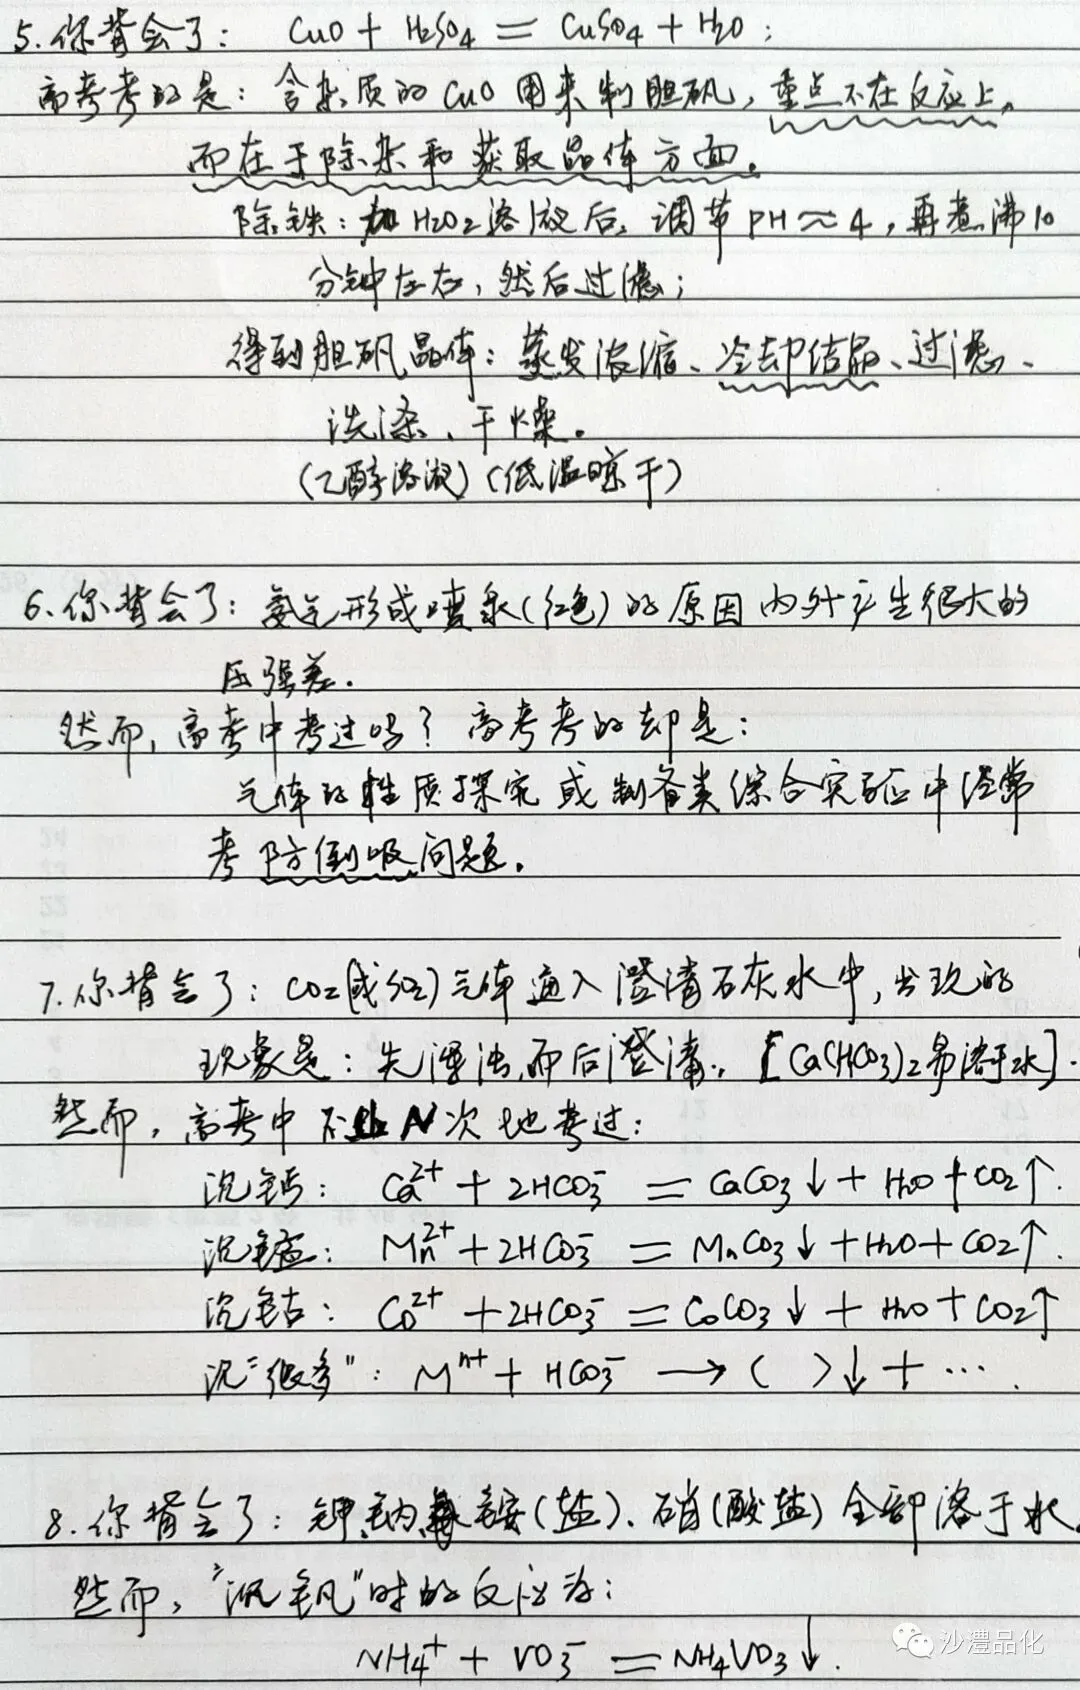 5. 你背会了: CuO + H₂SO₄ = CuSO₄ + H₂O;
高考考的是: 含杂质的CuO用来制胆矾, 重点不在反应上,
而在于除杂和获取晶体方面。
除铁: 加H₂O₂溶液后, 调节PH≈4, 再煮沸10
分钟左右, 然后过滤;
得到胆矾晶体: 蒸发浓缩、冷却结晶、过滤、
洗涤、干燥。
(乙醇溶液)(低温晾干)
6. 你背会了: 氨气形成喷泉(红色)的原因内外产生很大的
压强差.
然而, 高考中考过吗? 高考考的却是:
气体的性质探究或制备类综合实验中经常
考防倒吸问题。
7. 你背会了: CO₂(或SO₂)气体通入澄清石灰水中, 出现的
现象是: 先浑浊,而后澄清. [Ca(HCO₃)₂易溶于水].
然而, 高考中不止N次地考过:
沉钙: Ca²⁺ + 2HCO₃⁻ = CaCO₃↓ + H₂O + CO₂↑.
沉锰: Mn²⁺ + 2HCO₃⁻ = MnCO₃↓ + H₂O + CO₂↑.
沉钴: Co²⁺ + 2HCO₃⁻ = CoCO₃↓ + H₂O + CO₂↑
沉"很多": Mⁿ⁺ + HCO₃⁻ → ( )↓ + ….
8. 你背会了: 钾、钠、铵(盐)、硝(酸盐)全部溶于水.
然而, "沉钒"时的反应为:
NH₄⁺ + VO₃⁻ = NH₄VO₃↓.
沙澧品化